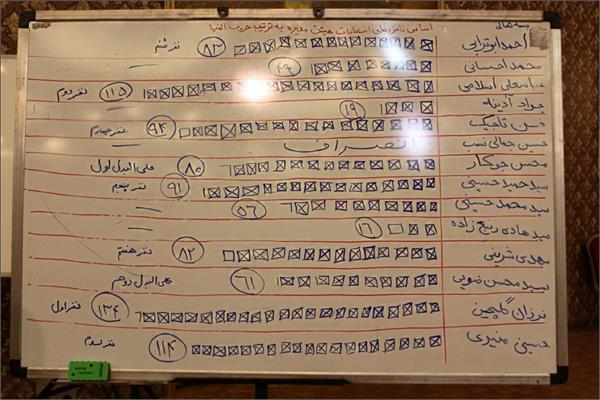 بسمه تعالی
اسامی نامزدهای انتخابات هیئت مدیره به ترتیب حروف الفبا
احمد ابوترابی ۸۳ نفر ششم
محمد احسانی ۴۹
عباسعلی اسلامی ۱۱۵ نفر دوم
جواد آدینه ۱۹
حسن تاجیک ۹۴ نفر چهارم
حسن جمالی نسب انصراف
محسن جوکار ۸۰ علی البدل اول
سید حمید حسینی ۹۱ نفر پنجم
سید محمد حسینی ۵۶
سید هادی رفیع زاده ۱۶
مهدی شریفی ۸۲ نفر هفتم
سید محسن ۶۱ علی البدل دوم
فرزان گلچین ۱۳۴ نفر اول
حسین منیری ۱۱۴ نفر سوم